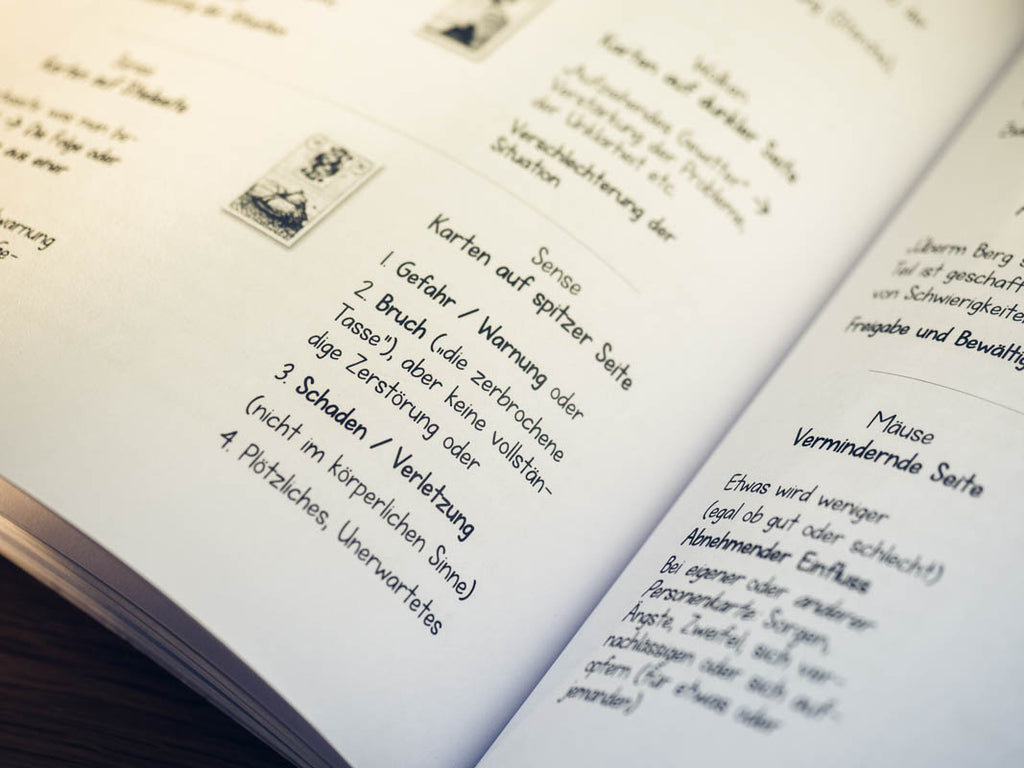 Karten auf
Warnung
Wolken
Karten auf dunkler Seite
„Aufziehendes Gewitter“ →
Verstärkung der Probleme,
der Unklarheit etc.
Verschlechterung der
Situation
Sense
Karten auf spitzer Seite
1. Gefahr / Warnung oder
2. Bruch („die zerbrochene
Tasse“), aber keine vollstän-
dige Zerstörung oder
3. Schaden / Verletzung
(nicht im körperlichen Sinne)
4. Plötzliches, Unerwartetes
„Überm Berg
Teil ist geschaff
von Schwierigkeite
Freigabe und Bewältig
Mäuse
Vermindernde Seite
Etwas wird weniger
(egal ob gut oder schlecht)
Abnehmender Einfluss
Bei eigener oder anderer
Personenkarte Sorgen,
Ängste, Zweifel, sich ver-
nachlässigen oder sich auf-
opfern (für etwas oder
jemanden)